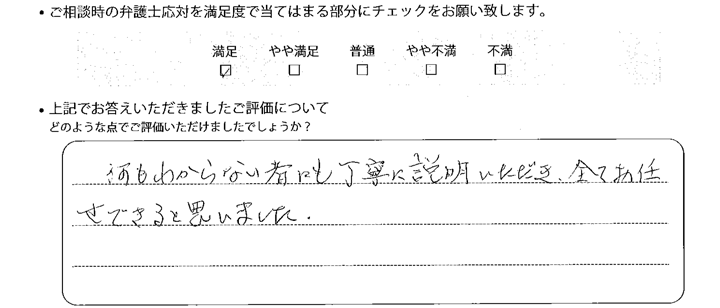 ・ご相談時の弁護士応対を満足度で当てはまる部分にチェックをお願い致します。
満足 やや満足 普通 やや不満 不満
☑ □ □ □ □
・上記でお答えいただきましたご評価について
どのような点でご評価いただけましたでしょうか？
何もわからない者にも丁寧に説明いただき、全てお任
せできると思いました.